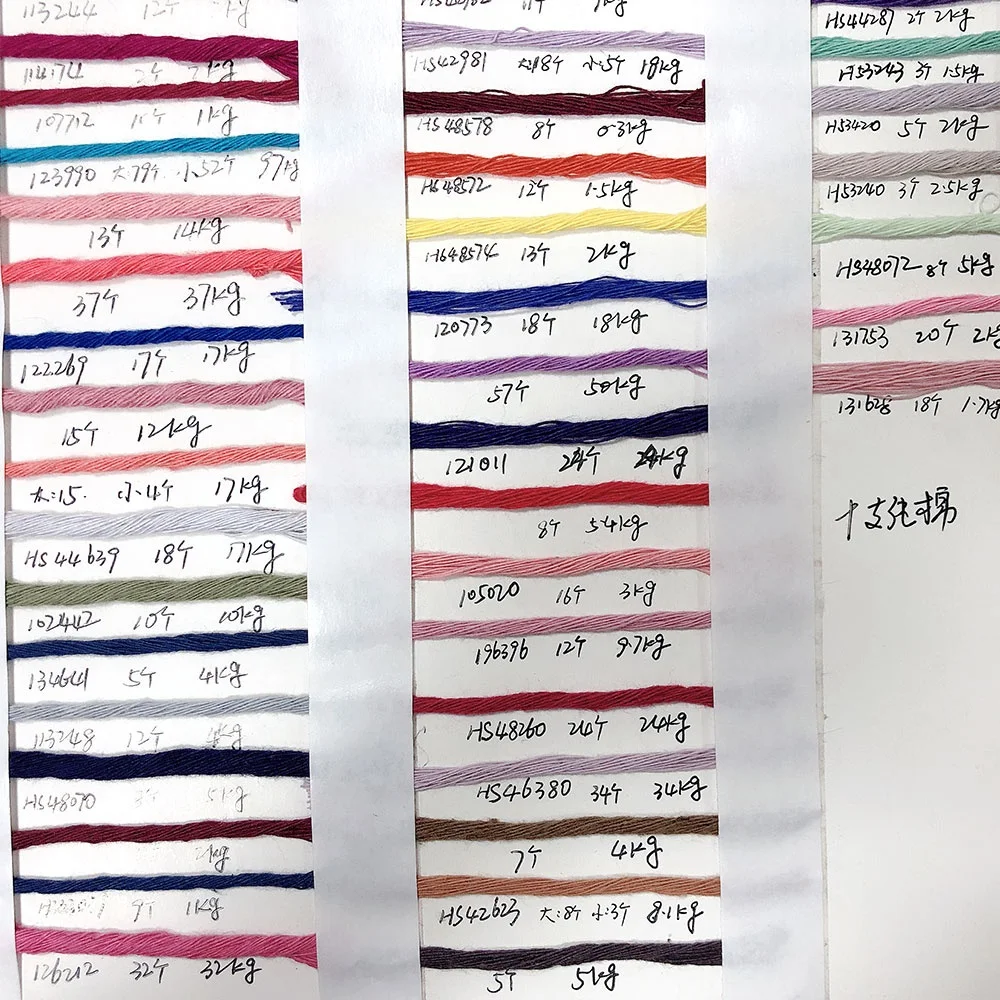 113244 12个
107712 10个 1kg
123990 大:79个 小52个 97kg
13个 14kg
37个 37kg
122269 17个 17kg
15个 12kg
大:15. 小:4个 17kg
HS44639 18个 7kg
102442 10个 10kg
134641 5个 4kg
113248 12个
HS48070 5kg
9个 1kg
126212 32个 32kg
HS42981 大:18个 小:5个 18kg
HS48578 8个 0.3kg
HS48572 12个 1.5kg
HS48574 13个 2kg
120773 18个 18kg
57个 50kg
121011 24个
8个 5.4kg
105020 16个 3kg
196396 12个 9.7kg
HS48260 24个 24kg
HS46380 34个 34kg
7个 4kg
HS42623 大:8个 小:3个 8.1kg
5个 5kg
HS44289 2个 2kg
HS3243 3个 1.5kg
HS3420 5个 2kg
HS3240 3个 2.5kg
HS48072 8个 5kg
131753 20个 2kg
131628 18个 1.7kg
十支纯棉